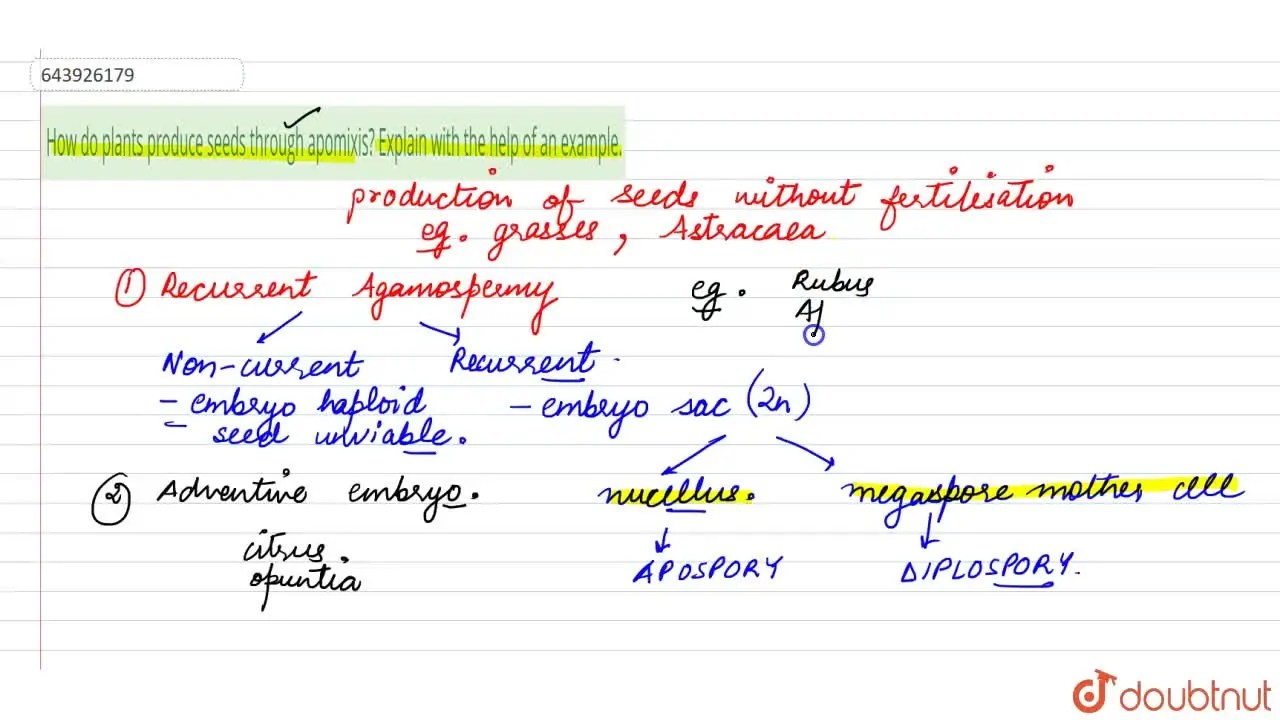 643926179
How do plants produce seeds through apomixis? Explain with the help of an example.
production of seeds without fertilisation
eg. grasses, Astracaea
① Recurrent Agamospermy eg. Rubus
Af
Non-current Recurrent.
- embryo haploid - embryo sac (2n)
- seed unviable.
② Adventine embryo. nucellus. megaspore mother cell
citrus. APOSPORY DIPLOSPORY.
opuntia
doubtnut